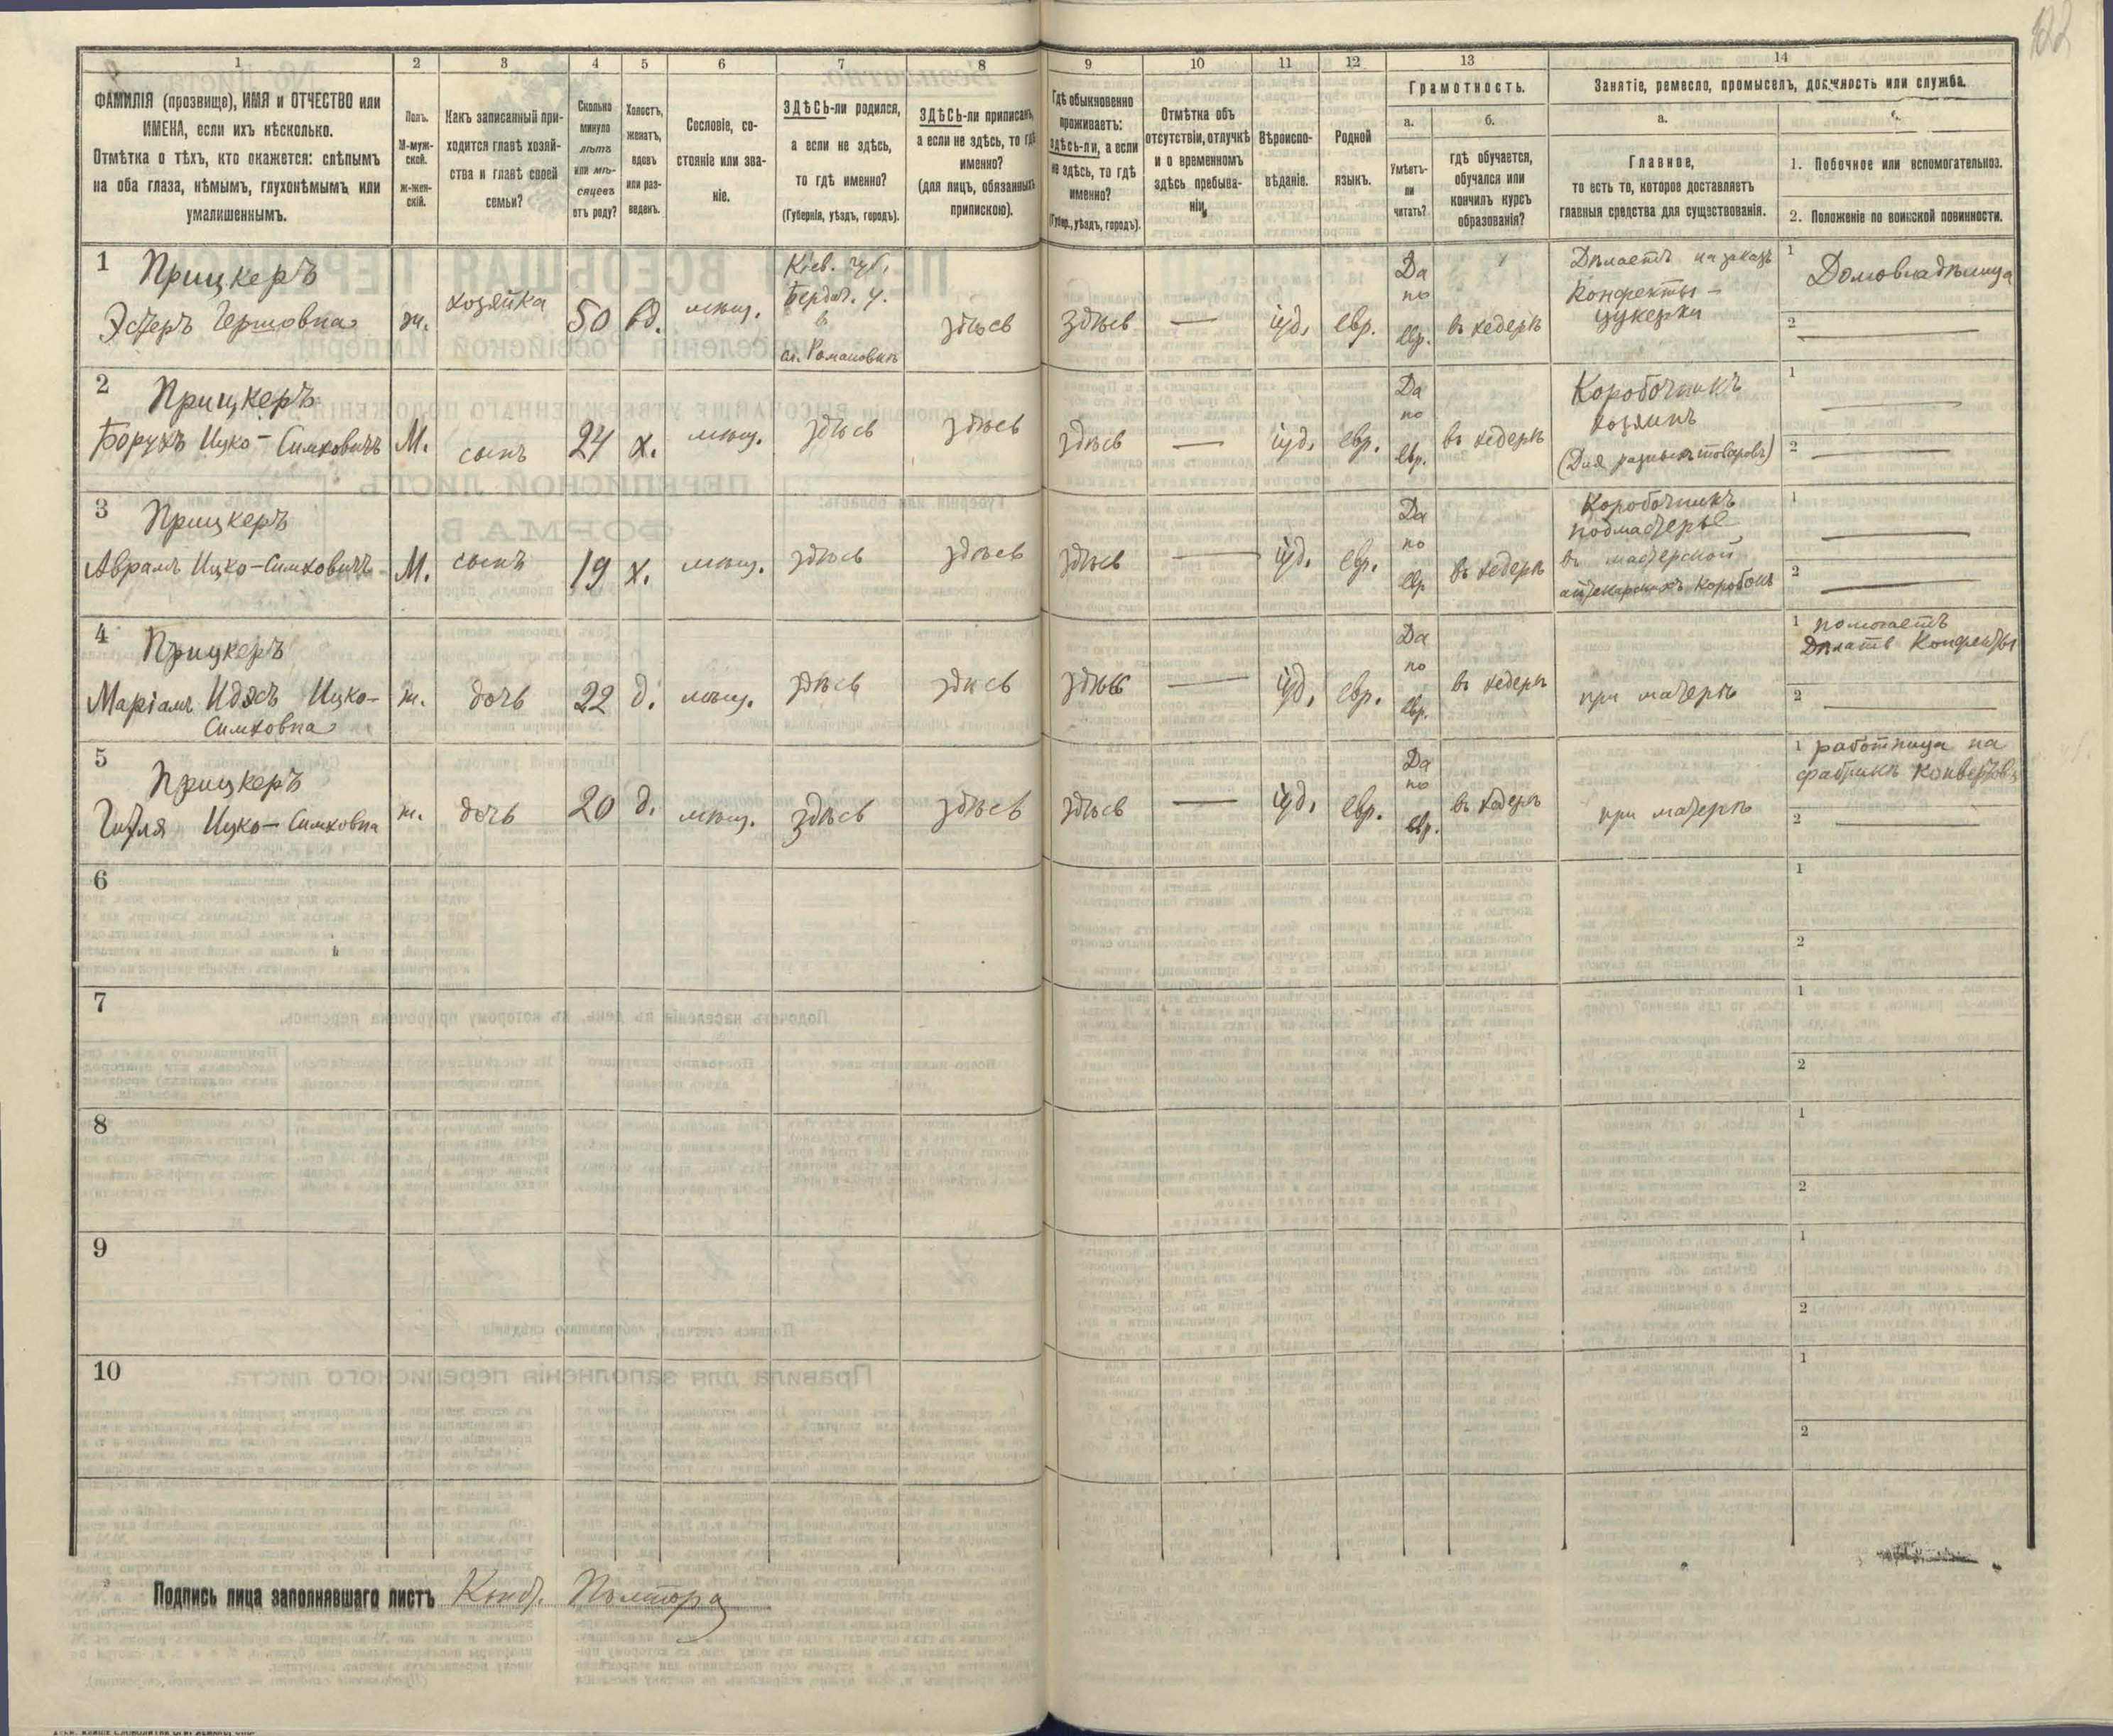 122
1
2
3
4
5
6
7
8
9
10
11
12
13
14
ФАМИЛІЯ (прозвище), ИМЯ и ОТЧЕСТВО или
ИМЕНА, если ихъ нѣсколько.
Отмѣтка о тѣхъ, кто окажется: слѣпымъ
на оба глаза, нѣмымъ, глухонѣмымъ или
умалишеннымъ.
Полъ.
М-муж-
ской.
ж-жен-
скій.
Какъ записанный при-
ходится главѣ хозяй-
ства и главѣ своей
семьи?
Сколько
минуло
лѣтъ
или мѣ-
сяцевъ
отъ роду?
Холостъ,
женатъ,
вдовъ
или раз-
веденъ.
Сословіе, со-
стояніе или зва-
ніе.
ЗДѢСЬ-ли родился,
а если не здѣсь,
то гдѣ именно?
(Губернія, уѣздъ, городъ).
ЗДѢСЬ-ли приписанъ,
а если не здѣсь, то гдѣ
именно?
(для лицъ, обязанныхъ
припискою).
Гдѣ обыкновенно
проживаетъ:
здѣсь-ли, а если
не здѣсь, то гдѣ
именно?
(Губер., уѣздъ, городъ).
Отмѣтка объ
отсутствіи, отлучкѣ
и о временномъ
здѣсь пребыва-
ніи.
Вѣроиспо-
вѣданіе.
Родной
языкъ.
Грамотность.
а.
Умѣетъ-
ли
читать?
б.
гдѣ обучается,
обучался или
кончилъ курсъ
образованія?
Занятіе, ремесло, промыселъ, должность или служба.
а.
Главное,
то есть то, которое доставляетъ
главныя средства для существованія.
1. Побочное или вспомогательное.
2. Положеніе по воинской повинности.
1
Прицкеръ
Эстеръ Гершовна
ж.
хозяйка
50
вд.
мѣщ.
Кіев. губ,
Бердич. у.
в
м. Романовкѣ
здѣсь
здѣсь
—
іуд.
евр.
Да
по
евр.
въ хедерѣ
Дѣлаетъ на заказъ
Конфекты -
цукерки
1
Домовладѣлица
2 —
2
Прицкеръ
Борухъ Ицко-Симховичъ
М.
сынъ
24
х.
мѣщ.
здѣсь
здѣсь
здѣсь
—
іуд.
евр.
Да
по
евр.
въ хедерѣ
Коробочникъ
хозяинъ
(Для разныхъ товаровъ)
1 —
2 —
3
Прицкеръ
Аврамъ Ицко-Симховичъ
М.
сынъ
19
х.
мѣщ.
здѣсь
здѣсь
здѣсь
—
іуд.
евр.
Да
по
евр
въ хедерѣ
Коробочникъ
подмастерье
въ мастерской
аптекарскихъ коробокъ
1 —
2 —
4
Прицкеръ
Маріамъ Идясъ Ицко-
Симховна
ж.
дочь
22
д.
мѣщ.
здѣсь
здѣсь
здѣсь
—
іуд.
евр.
Да
по
евр.
въ хедерѣ
при матерѣ
1 помогаетъ
Дѣлать Конфекты
2 —
5
Прицкеръ
Гитля Ицко-Симховна
ж.
дочь
20
д.
мѣщ.
здѣсь
здѣсь
здѣсь
—
іуд.
евр.
Да
по
евр.
въ хедерѣ
при матерѣ
1 работница на
фабрикѣ конвертовъ
2 —
6
1
2
7
1
2
8
1
2
9
1
2
10
1
2
Подпись лица заполнявшаго листъ